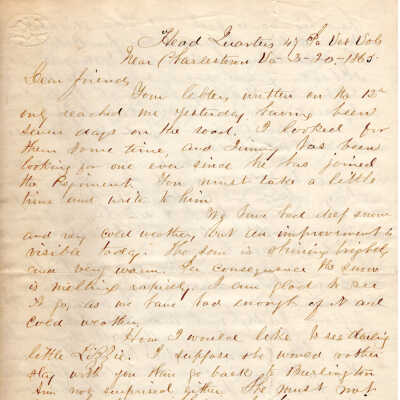 Head Quarters 47 Pa Vet Vols
Near Charlestown Va 3-20-1865
Dear friends
Your letter, written on the 12th
only reached me yesterday having been
seven days on the road. I looked for
them some time, and Jimmy has been
looking for one ever since he has joined
the Regiment. You must take a little
time and write to him.
We have had deep snow
and very cold weather, but an improvement is
visible today. The sun is shining brightly
and very warm. In consequence the snow
is melting rapidly. I am glad to see
it go, as we have had enough of it and
cold weather.
How I would like to see darling
little Lizzie. I suppose she would rather
stay with you than go back to Burlington
Am not surprised either. She must not